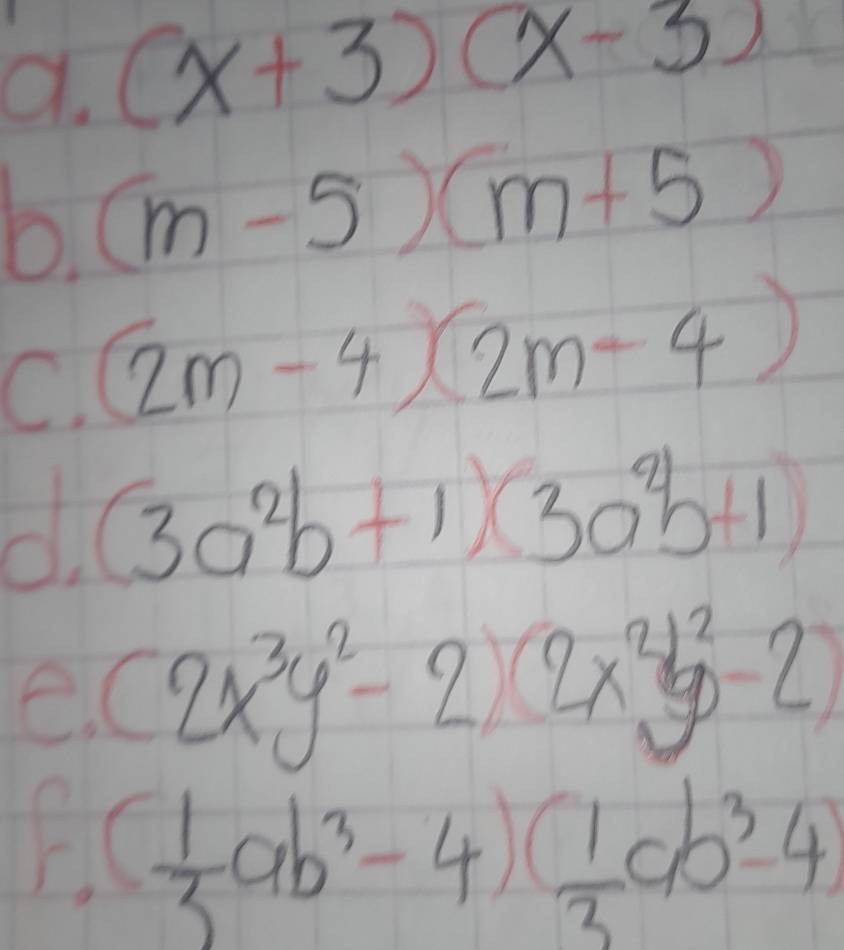 a. (x + 3) (x - 3)
b. (m - 5) (m + 5)
c. (2m - 4) (2m - 4)
d. (3a²b + 1) (3a²b + 1)
e. (2x³y² - 2) (2x²y² - 2)
f. (1/3 ab³ - 4) (1/3 ab³ - 4)